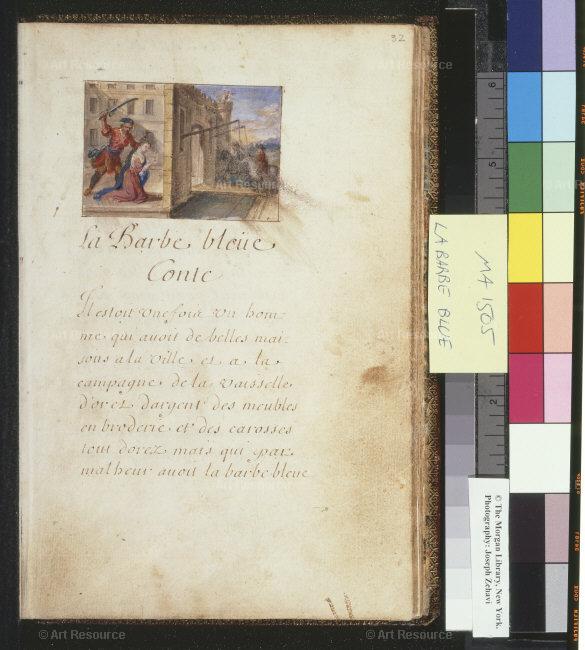 32
La Barbe bleüe
Conte
Il estoit vne fois vn hom-
me qui auoit de belles mai-
sons a la ville et a la
campagne de la vaisselle
d'or et d'argent des meubles
en broderie et des carosses
tout dorez mais qui par
malheur auoit la barbe bleue
MA 1505
LA BARBE BLUE
6
5
2
© The Morgan Library, New York.
Photography: Joseph Zehavi
© Art Resource
© Art Resource
© Art Resource
© Art Resource
© Art Resource
© Art Resource